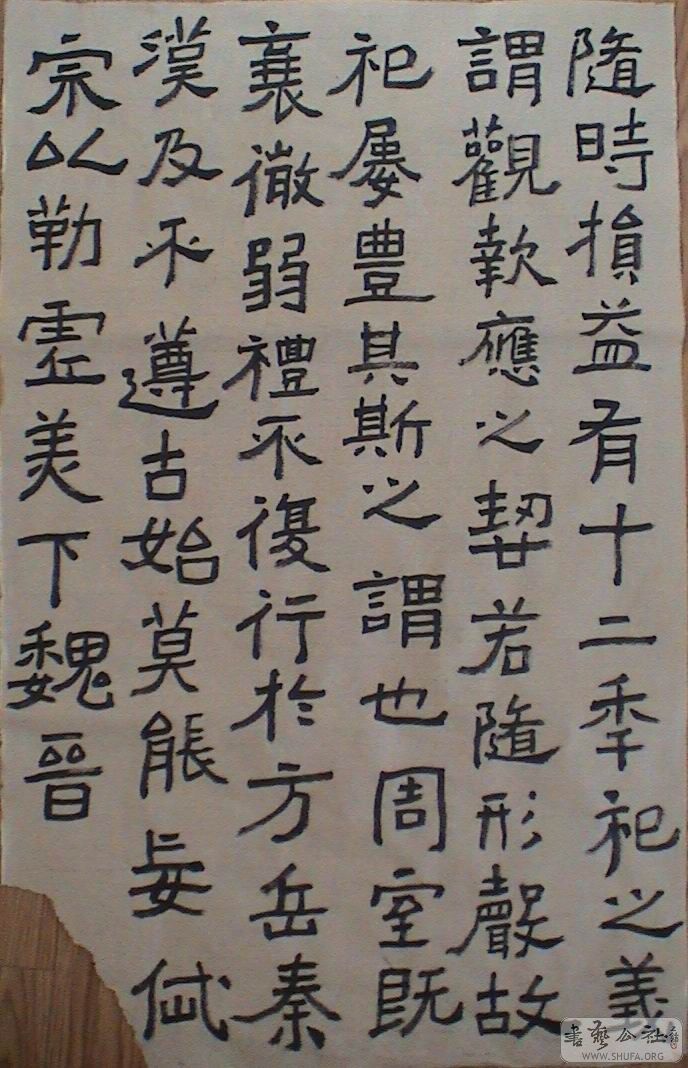 隨時損益有十二秊祀之義
謂觀款應之契若隨形聲故
祀屢豊其斯之謂也周室既
衰微弱禮不復行於方岳秦
漢及不遵古始莫能妄
宗以勒虛美下魏晉
書藝公社
WWW.SHUFA.ORG